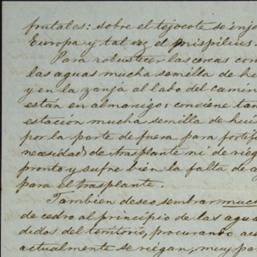 frutales: sobre el tejocote se inje
Europa y tal vez el mispilius
Para robustecer las cercas con
las aguas mucha semilla de hui
y en la zanja al lado del camin
están en almacigo: conviene tam
estación mucha semilla de hui
por la parte de fuera para fortifi
necesidad de trasplante ni de rieg
pronto y sufre bien la falta de a
para el trasplante.
Tambien deseo sembrar muc
de cedro al principio de las agua
didos del territorio, procurando ac
actualmente se riegan, muy pa